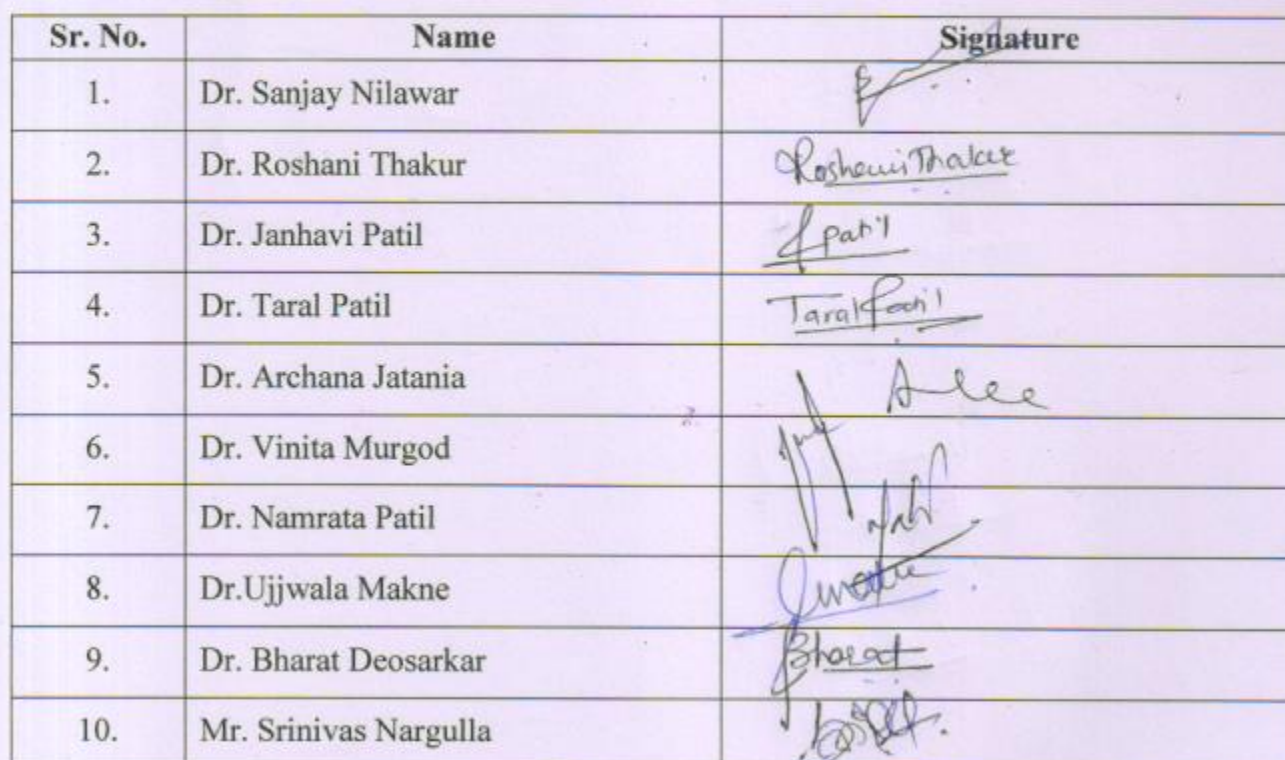 Sr. No. Name Signature
1. Dr. Sanjay Nilawar
2. Dr. Roshani Thakur Roshani Thakur
3. Dr. Janhavi Patil Patil
4. Dr. Taral Patil Taral Patil
5. Dr. Archana Jatania
6. Dr. Vinita Murgod
7. Dr. Namrata Patil
8. Dr.Ujjwala Makne
9. Dr. Bharat Deosarkar Bharat
10. Mr. Srinivas Nargulla